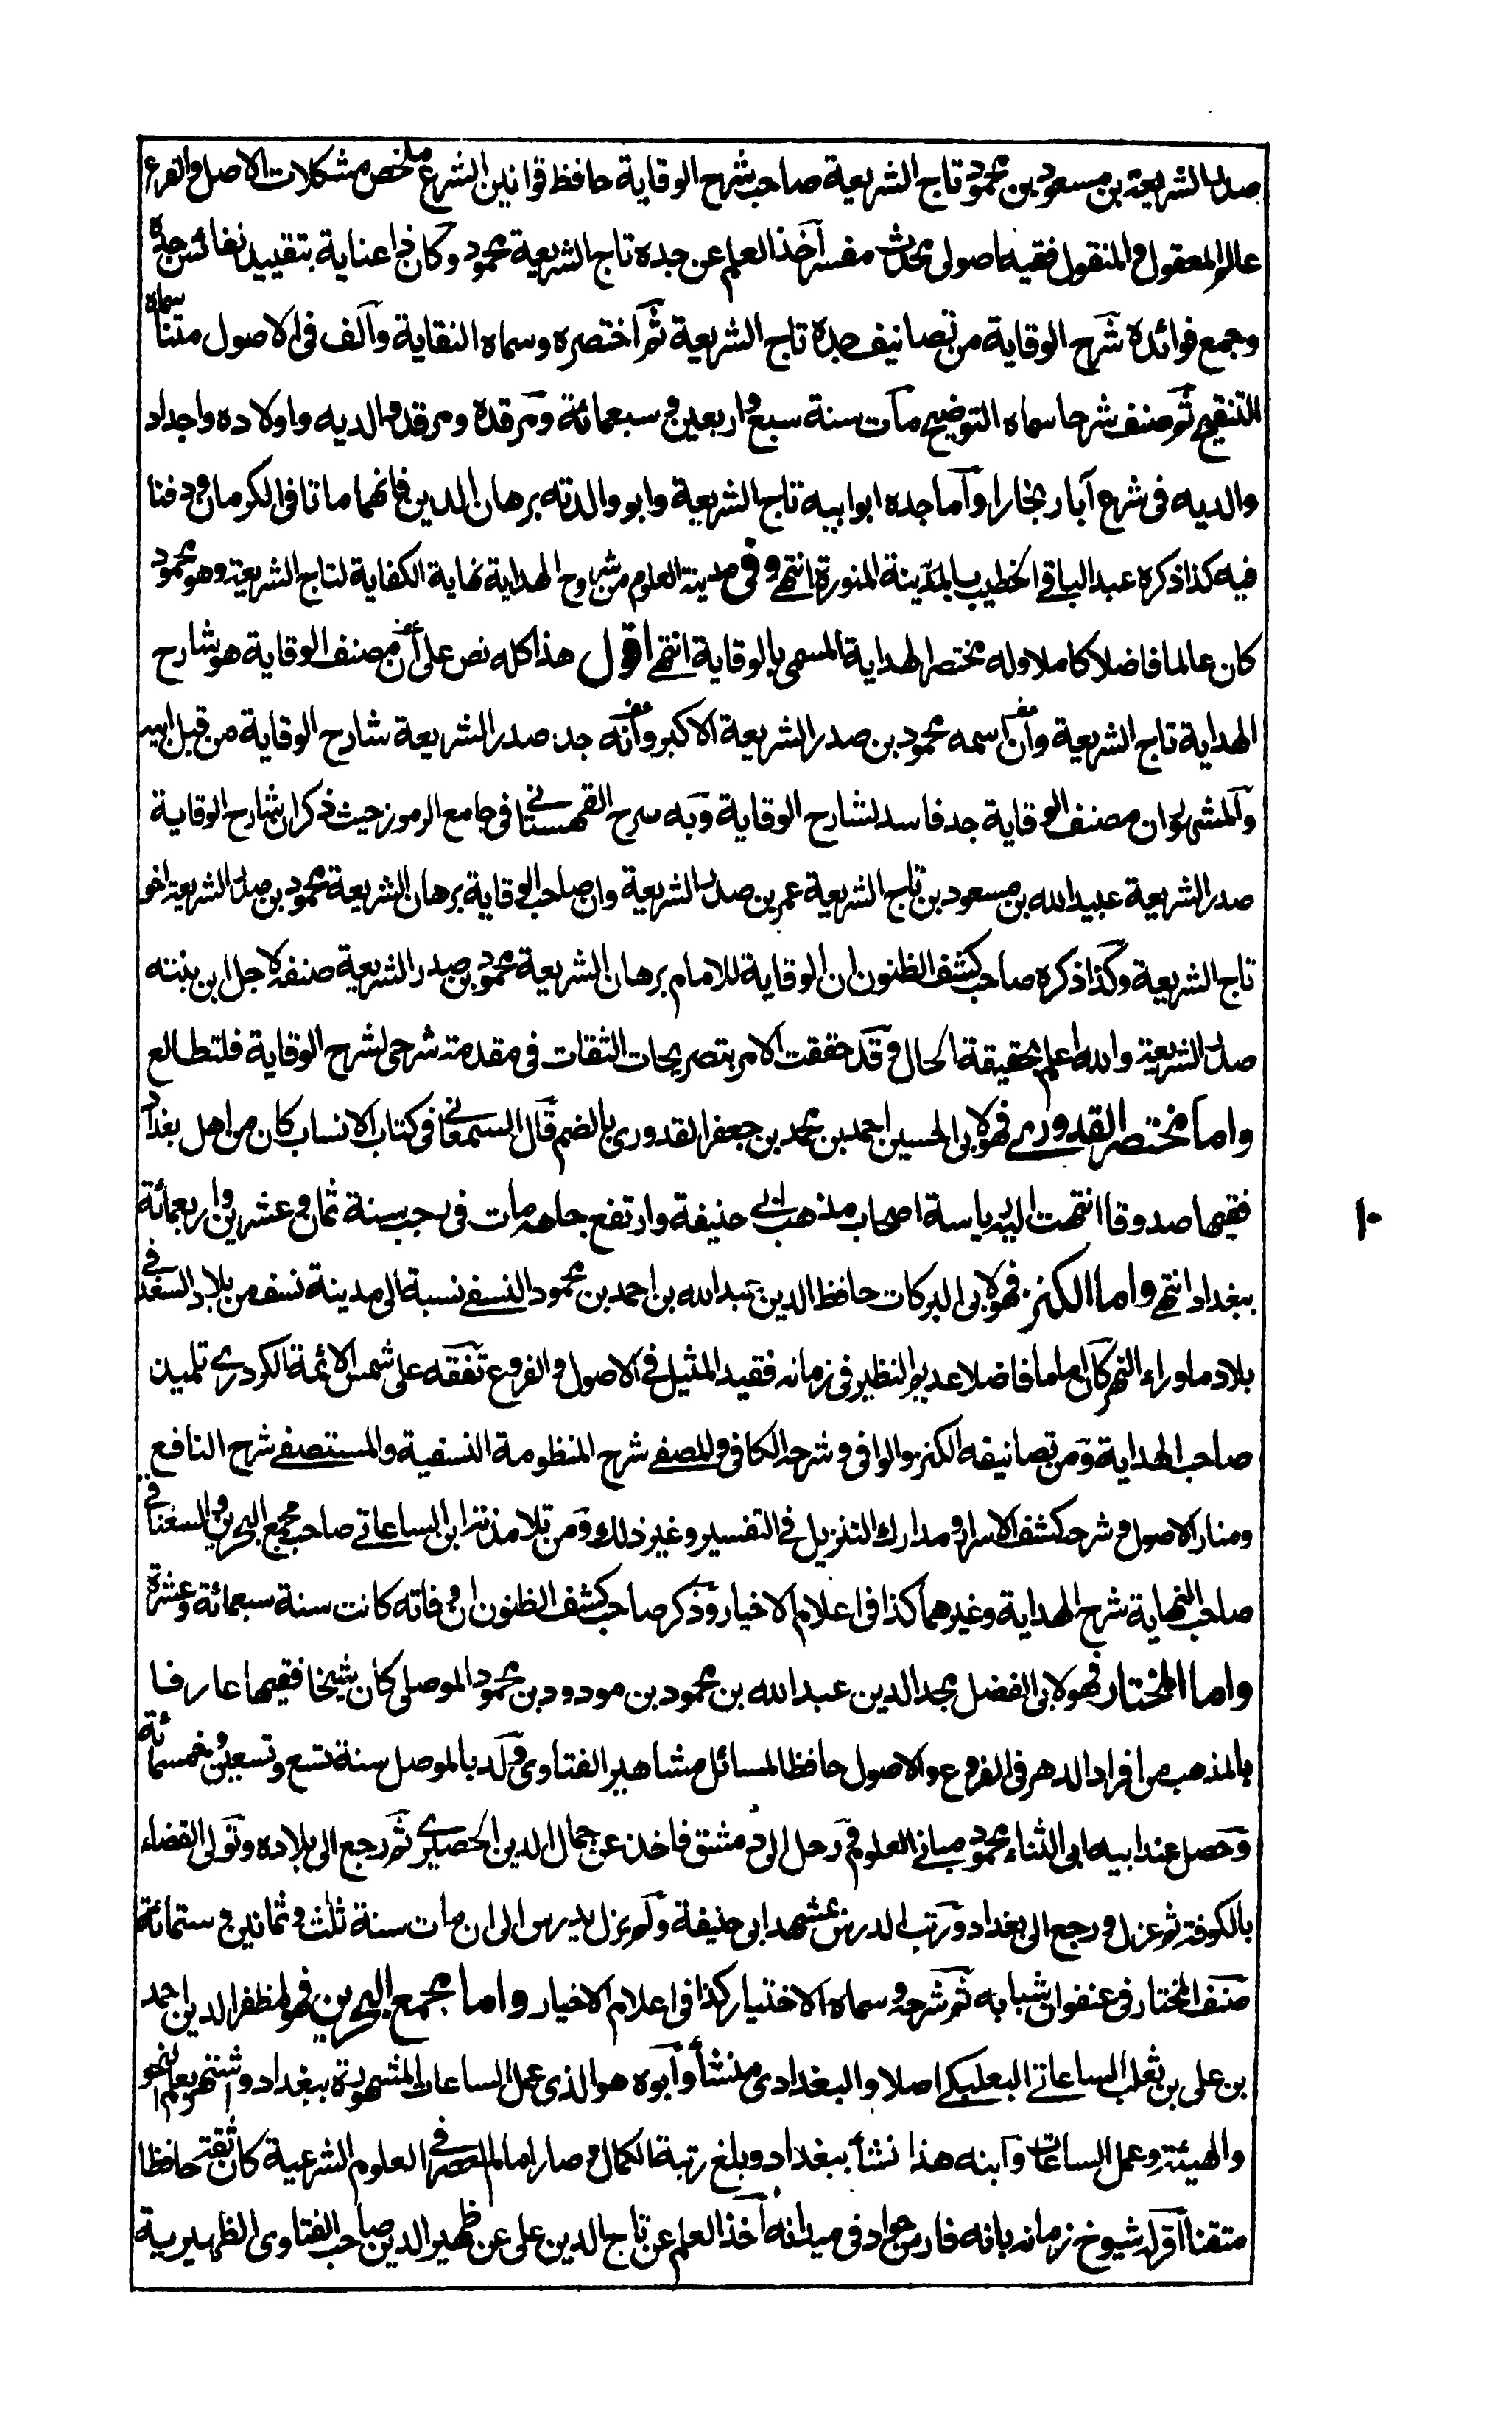 صدر الشريعة بن مسعود بن محمود تاج الشريعة صاحب شرح الوقاية حافظ قوانين الشرع ملخص مشكلات الاصل والفرع
عالم المعقول والمنقول فقيه اصولى محدث مفسر اخذ العلم عن جده تاج الشريعة محمود وكان ذا عناية بتقييد نفائس جده
وجمع فوائده شرح الوقاية من تصانيف جده تاج الشريعة ثم اختصره وسماه النقاية وألف فى الاصول متنا سماه
التنقيح ثم صنف شرحا سماه التوضيح مات سنة سبع واربعين وسبعمائة ومرقده ومرقد والديه واولاده واجداد
والديه فى شرع آبار بخارا وأما جده ابو ابيه تاج الشريعة وابو والدته برهان الدين فانهما ماتا فى الكرمان ودفنا
فيه كذا ذكره عبد الباقى الخطيب بالمدينة المنورة انتهى وفى مدينة العلوم من شروح الهداية نهاية الكفاية لتاج الشريعة وهو محمود
كان عالما فاضلا كاملا وله مختصر الهداية المسمى بالوقاية انتهى اقول هذا كله نص على أن مصنف الوقاية هو شارح
الهداية تاج الشريعة وأن اسمه محمود بن صدر الشريعة الاكبر وأنه جد صدر الشريعة شارح الوقاية من قبل ابيه
والمشهور ان مصنف الوقاية جد فاسد لشارح الوقاية وبه صرح القهستانى فى جامع الرموز حيث ذكر ان شارح الوقاية
صدر الشريعة عبيد الله بن مسعود بن تاج الشريعة عمر بن صدر الشريعة وان صاحب الوقاية برهان الشريعة محمود بن صدر الشريعة اخو
تاج الشريعة وكذا ذكره صاحب كشف الظنون ان الوقاية للامام برهان الشريعة محمود بن صدر الشريعة صنفه لاجل ابن بنته
صدر الشريعة والله اعلم بحقيقة الحال وقد حققت الامر بتصريحات الثقات فى مقدمة شرحى لشرح الوقاية فلتطالع
واما مختصر القدورى فهو لابى الحسين احمد بن محمد بن جعفر القدورى بالضم قال السمعانى فى كتاب الانساب كان من اهل بغداد
فقيها صدوقا انتهت اليه رياسة اصحاب مذهب ابى حنيفة وارتفع جاهه مات فى رجب سنة ثمان وعشرين واربعمائة
ببغداد انتهى واما الكنز فهو لابى البركات حافظ الدين عبد الله بن احمد بن محمود النسفى نسبة الى مدينة نسف من بلاد السغد فى
بلاد ماوراء النهر كان اماما فاضلا عديم النظير فى زمانه فقيد المثيل فى الاصول والفروع تفقه على شمس الائمة الكردرى تلميذ
صاحب الهداية ومن تصانيفه الكنز والوافى وشرحه الكافى والمصفى شرح المنظومة النسفية والمستصفى شرح النافع
ومنار الاصول وشرحه كشف الاسرار ومدارك التنزيل فى التفسير وغير ذلك ومن تلامذته ابن الساعاتى صاحب مجمع البحرين والسغناقى
صاحب النهاية شرح الهداية وغيرهما كذا فى اعلام الاخيار وذكر صاحب كشف الظنون ان وفاته كانت سنة سبعمائة وعشرة
واما المختار فهو لابى الفضل مجد الدين عبد الله بن محمود بن مودود بن محمود الموصلى كان شيخا فقيها عارفا
بالمذهب من افراد الدهر فى الفروع والاصول حافظا لمسائل مشاهير الفتاوى ولد بالموصل سنة تسع وتسعين وخمسمائة
وحصل عند ابيه ابى الثناء محمود مبانى العلوم ورحل الى دمشق فاخذ عن جمال الدين الحصيرى ثم رجع الى بلاده وتولى القضاء
بالكوفة ثم عزل ورجع الى بغداد ورتب الدرس بمشهد ابى حنيفة ولم يزل يدرس الى ان مات سنة ثلث وثمانين وستمائة
صنف المختار فى عنفوان شبابه ثم شرحه وسماه الاختيار كذا فى اعلام الاخيار واما مجمع البحرين فهو لمظفر الدين احمد
بن على بن ثعلب الساعاتى البعلبكى اصلا والبغدادى منشأ وأبوه هو الذى عمل الساعات المشهورة ببغداد واشتهر بعلم النحو
والهيئة وعمل الساعات وابنه هذا نشأ ببغداد وبلغ رتبة الكمال وصار امام العصر فى العلوم الشرعية كان ثقة حافظا
متقنا اقر له شيوخ زمانه بانه فارس جواد فى ميدانه اخذ العلم عن تاج الدين على عن ظهير الدين صاحب الفتاوى الظهيرية
١٠